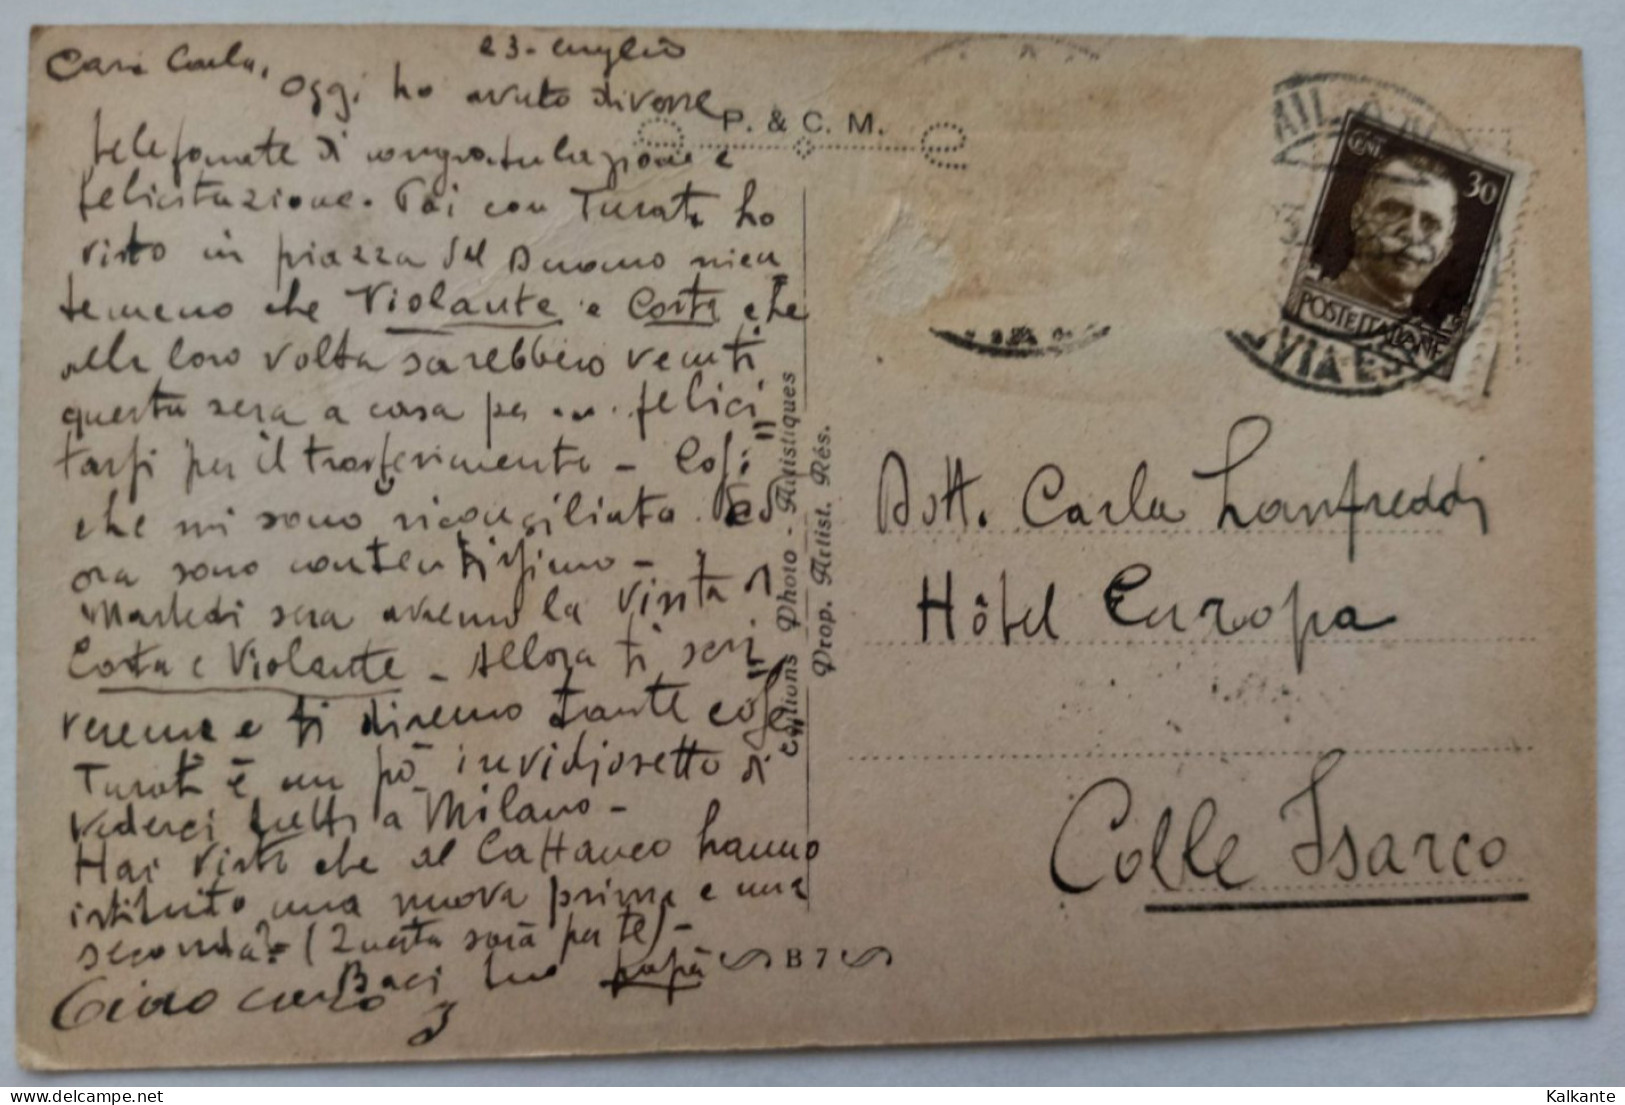 Cara Carla,
23 - luglio
Oggi ho avuto diverse
telefonate di congratulazione e
felicitazione. Poi con Turati ho
visto in piazza del Duomo nien
temeno che Violante e Costa che
alla loro volta sarebbero venuti
questa sera a casa per ... felici
tarsi per il trasferimento - Così
che mi sono riconciliata ed
ora sono contentissimo -
Martedì sera avremo la visita di
Costa e Violante - Allora ti scri
veremo e ti diremo tante cose
Turati è un pò invidiosetto di
vederci tutti a Milano -
Hai visto che al Cattaneo hanno
istituito una nuova prima e una
seconda? - (Questa sarà per te) -
Baci tuo papà
Ciao cara
P. & C. M.
Editions Photo - Artistiques
Prop. Artist. Rés.
B 7
MILANO
CENT. 30
POSTE ITALIANE
VIA ES
Dott. Carla Lanfreddi
Hôtel Europa
Colle Isarco
Kalkante